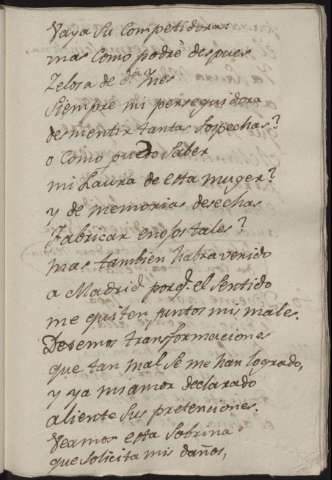 Vaya su competidora
mas como podrè despues
Zelosa de d.ª Ines
siempre mi perseguidora
desmentir tantas sospechas?
o como puedo saber
mi Laura de esta muger?
y de memorias desechas
fabricar enojos tales?
mas tambien habra venido
a Madrid porq.e el sentido
me quiten juntos mis males.
Dexemos transformaciones
que tan mal se me han logrado,
y ya mi amor declarado
aliente sus pretensiones.
Veamos esta sobrina
que solicita mis daños,